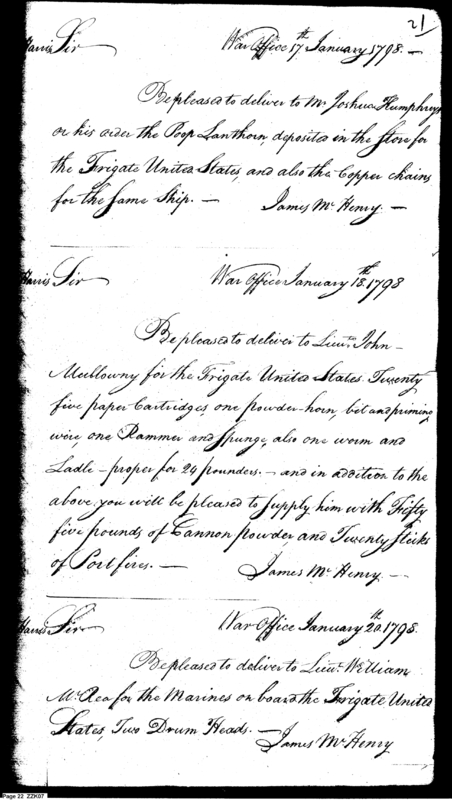 21
Harris Sir War Office 17th January 1798. —
Be pleased to deliver to Mr Joshua Humphreys
or his order the Poop Lanthorn, deposited in the store for
the Frigate United States, and also the Copper chains
for the same Ship. — James McHenry. —
Harris Sir War Office January 18th 1798
Be pleased to deliver to Lieut. John
Mullowny for the Frigate United States Twenty
five paper Cartridges one powder-horn, bit and priming
wire, one Rammer and Spunge, also one worm and
Ladle - proper for 24 pounders. — and in addition to the
above, you will be pleased to supply him with Fifty
five pounds of Cannon powder, and Twenty sticks
of Portfires. — James McHenry. —
Harris Sir War Office January 20th 1798.
Be pleased to deliver to Lieut. William
McRea for the Marines on board the Frigate United
States, Two Drum Heads. — James McHenry
Page 22 ZZK07